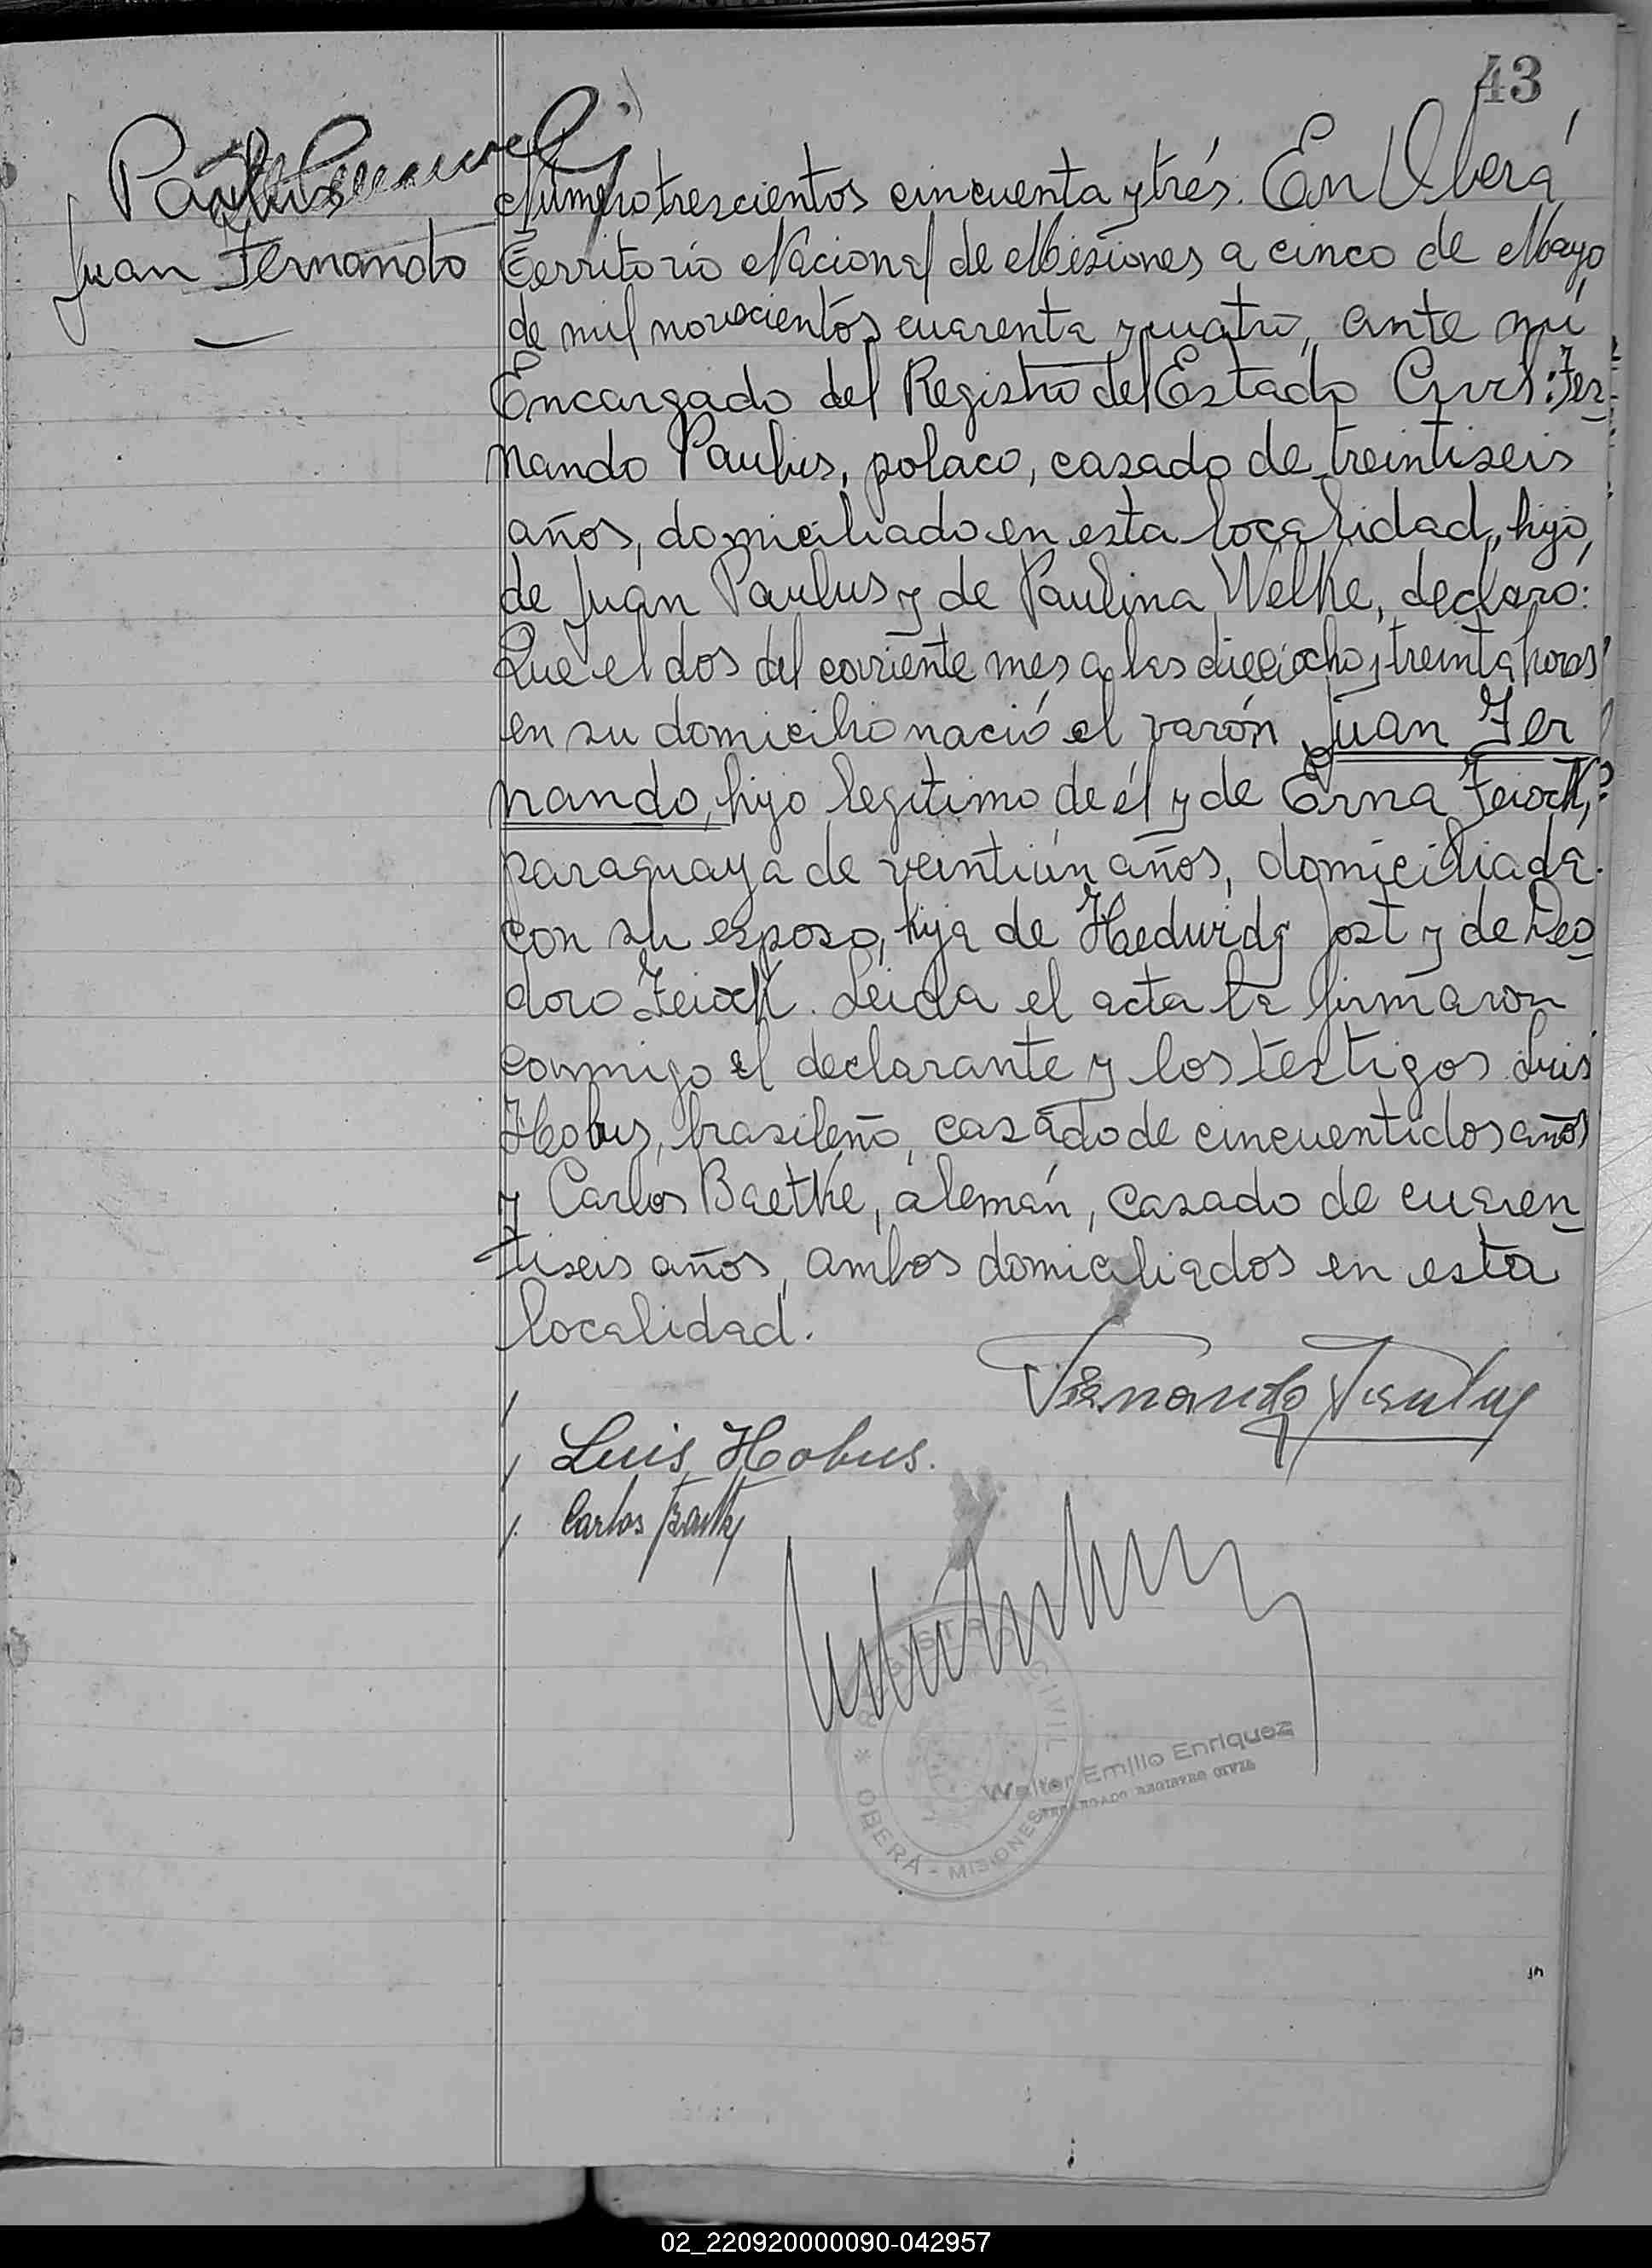 43
Paulus
Juan Fernando
Número trescientos cincuenta y trés. En Oberá,
Territorio Nacional de Misiones a cinco de Mayo
de mil novecientos cuarenta y cuatro, ante mí
Encargado del Registro del Estado Civil: Fer-
nando Paulus, polaco, casado de treintiseis
años, domiciliado en esta localidad, hijo
de Juan Paulus y de Paulina Welke, declaró:
Que el dos del corriente mes a las dieciocho y treinta horas
en su domicilio nació el varón Juan Fer
nando, hijo legítimo de él y de Erna
paraguaya de veintiún años, domiciliada
con su esposo, hija de Haedwidg Jost y de Deo
doro. Leida el acta la firmaron
conmigo el declarante y los testigos Luis
Hobus, brasileño, casado de cincuentidos años
y Carlos Baetke, alemán, casado de cuaren-
tiseis años, ambos domiciliados en esta
localidad.
Fernando Paulus
Luis Hobus.
Carlos
REGISTRO CIVIL
* OBERÁ - MISIONES
Walter Emilio Enriquez
ENCARGADO REGISTRO CIVIL
02_220920000090-042957